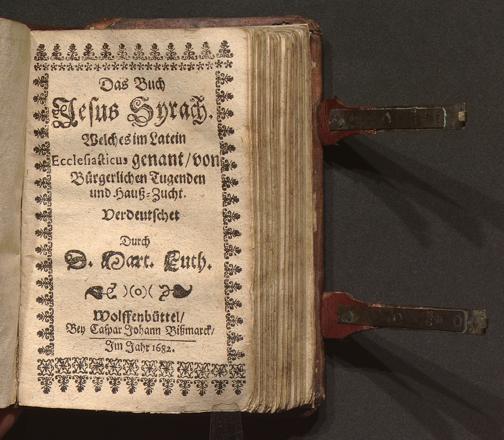 Das Buch
Jesus Syrach.
Welches im Latein
Ecclesiasticus genant/ von
Bürgerlichen Tugenden
und Hauß-Zucht.
Verdeutschet
Durch
D. Mart. Luth.
Wolffenbüttel/
Bey Caspar Johann Bißmarck/
Im Jahr 1682.